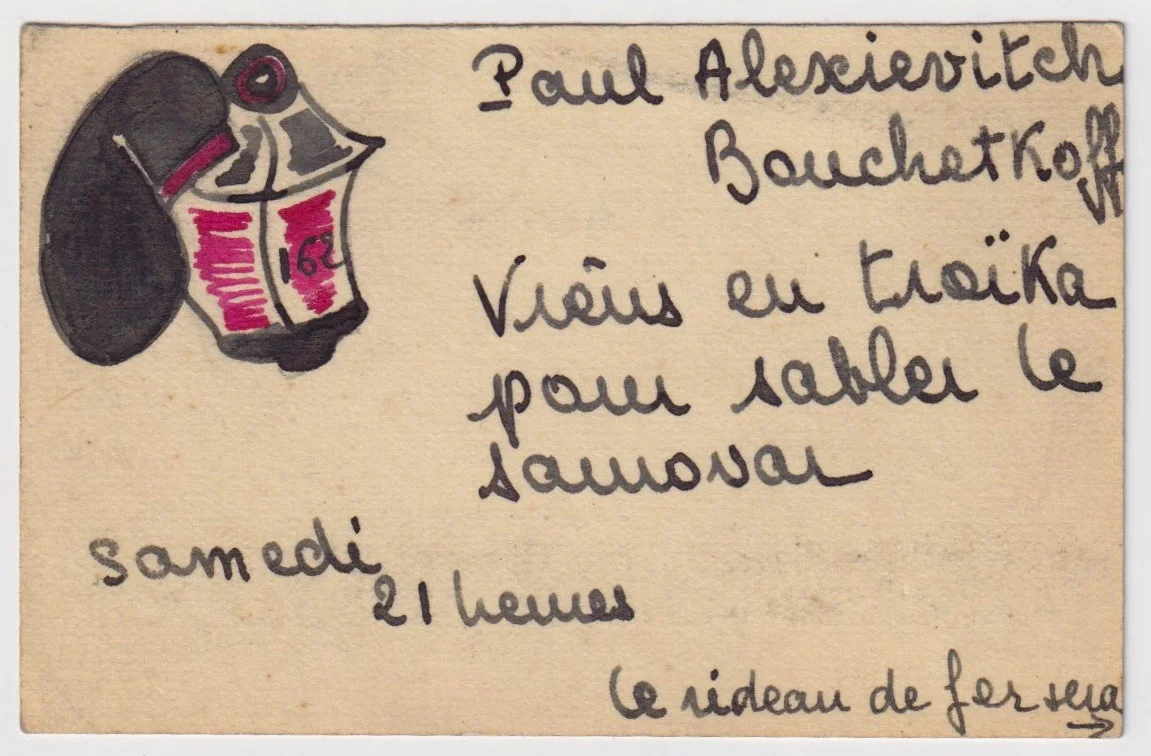 162
Paul Alexievitch
Bouchetkoff
Viens en troïka
pour sabler le
samovar
samedi
21 heures
le rideau de fer sera
→